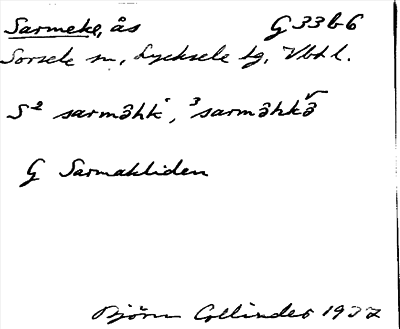 Sarmeke, ås G 33 b-6
Sorsele sn, Lycksele lg, Vbt l.
S² sarməhkˈ, ³sarməhkə̌
G Sarmakliden
Björn Collinder 1937